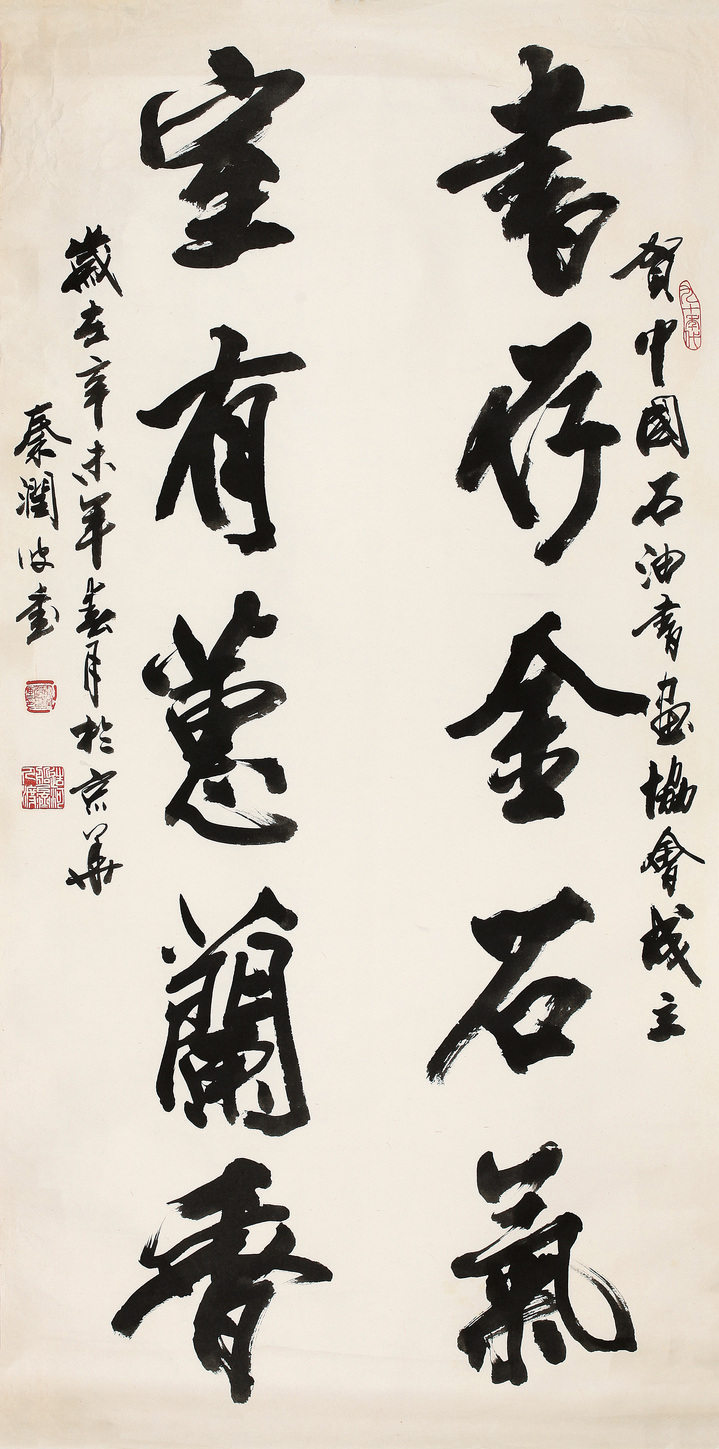 賀中國石油書畫協會成立
書存金石氣
室有蕙蘭香
歲在辛未年春月於京華
秦潤波書